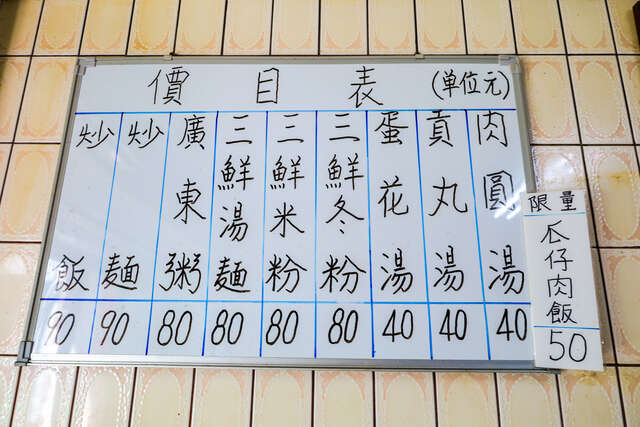 價目表 (单位元)
肉圓湯 40
貢丸湯 40
蛋花湯 40
三鮮冬粉 80
三鮮米粉 80
三鮮湯麵 80
廣東粥 80
炒麵 90
炒飯 90
限量
瓜仔肉飯
50